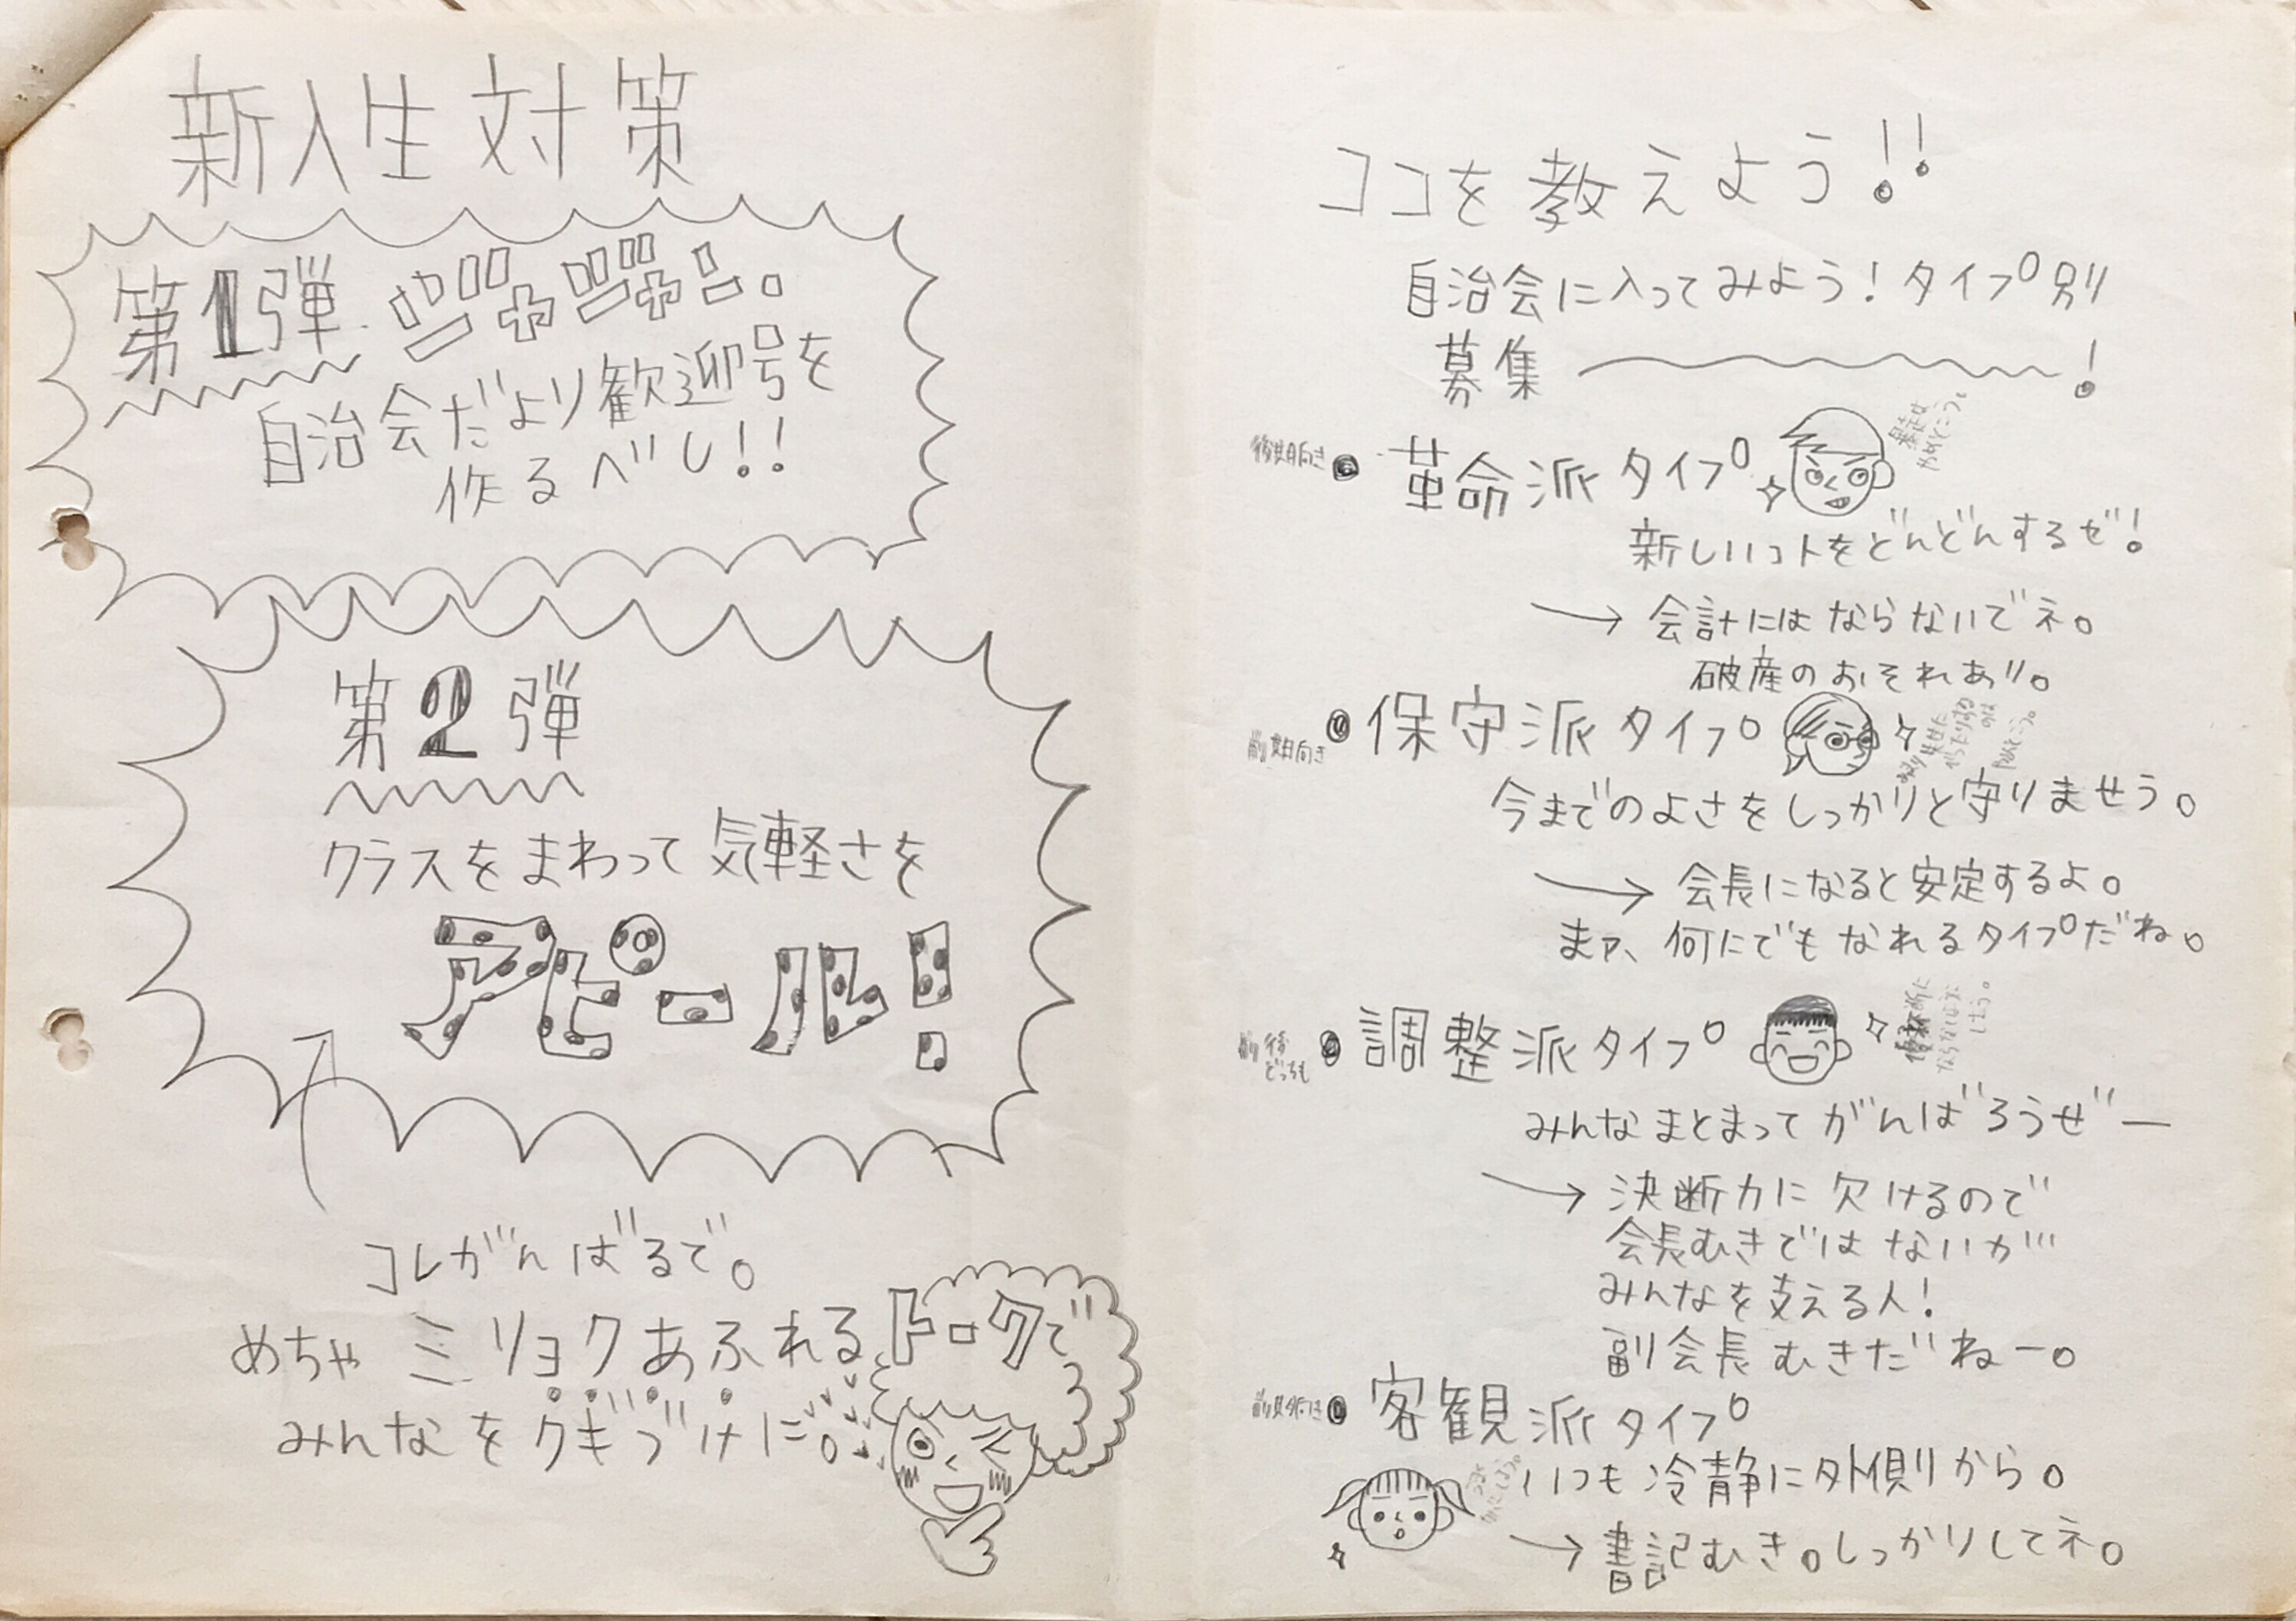 新入生対策
第1弾 ジャジャン。
自治会だより歓迎号を
作るべし!!
第2弾
クラスをまわって気軽さを
アピール!
コレがんばるで。
めちゃミリョクあふれるトークで
みんなをクギづけに。
ココを教えよう!!
自治会に入ってみよう!タイプ別
募集〜!
後期向き
革命派タイプ
暴走は
やめとこう。
新しいコトをどんどんするぜ!
→会計にはならないでネ。
破産のおそれあり。
前期向き
保守派タイプ
今までのよさをしっかりと守りませう。
→会長になると安定するよ。
まァ、何にでもなれるタイプだね。
前後
どっちも
調整派タイプ
優柔不断に
ならないように
しよう。
みんなまとまってがんばろうぜー
→決断力に欠けるので
会長むきではないが…
みんなを支える人!
副会長むきだねー。
客観派タイプ
いつも冷静に外側から。
→書記むき。しっかりしてネ。